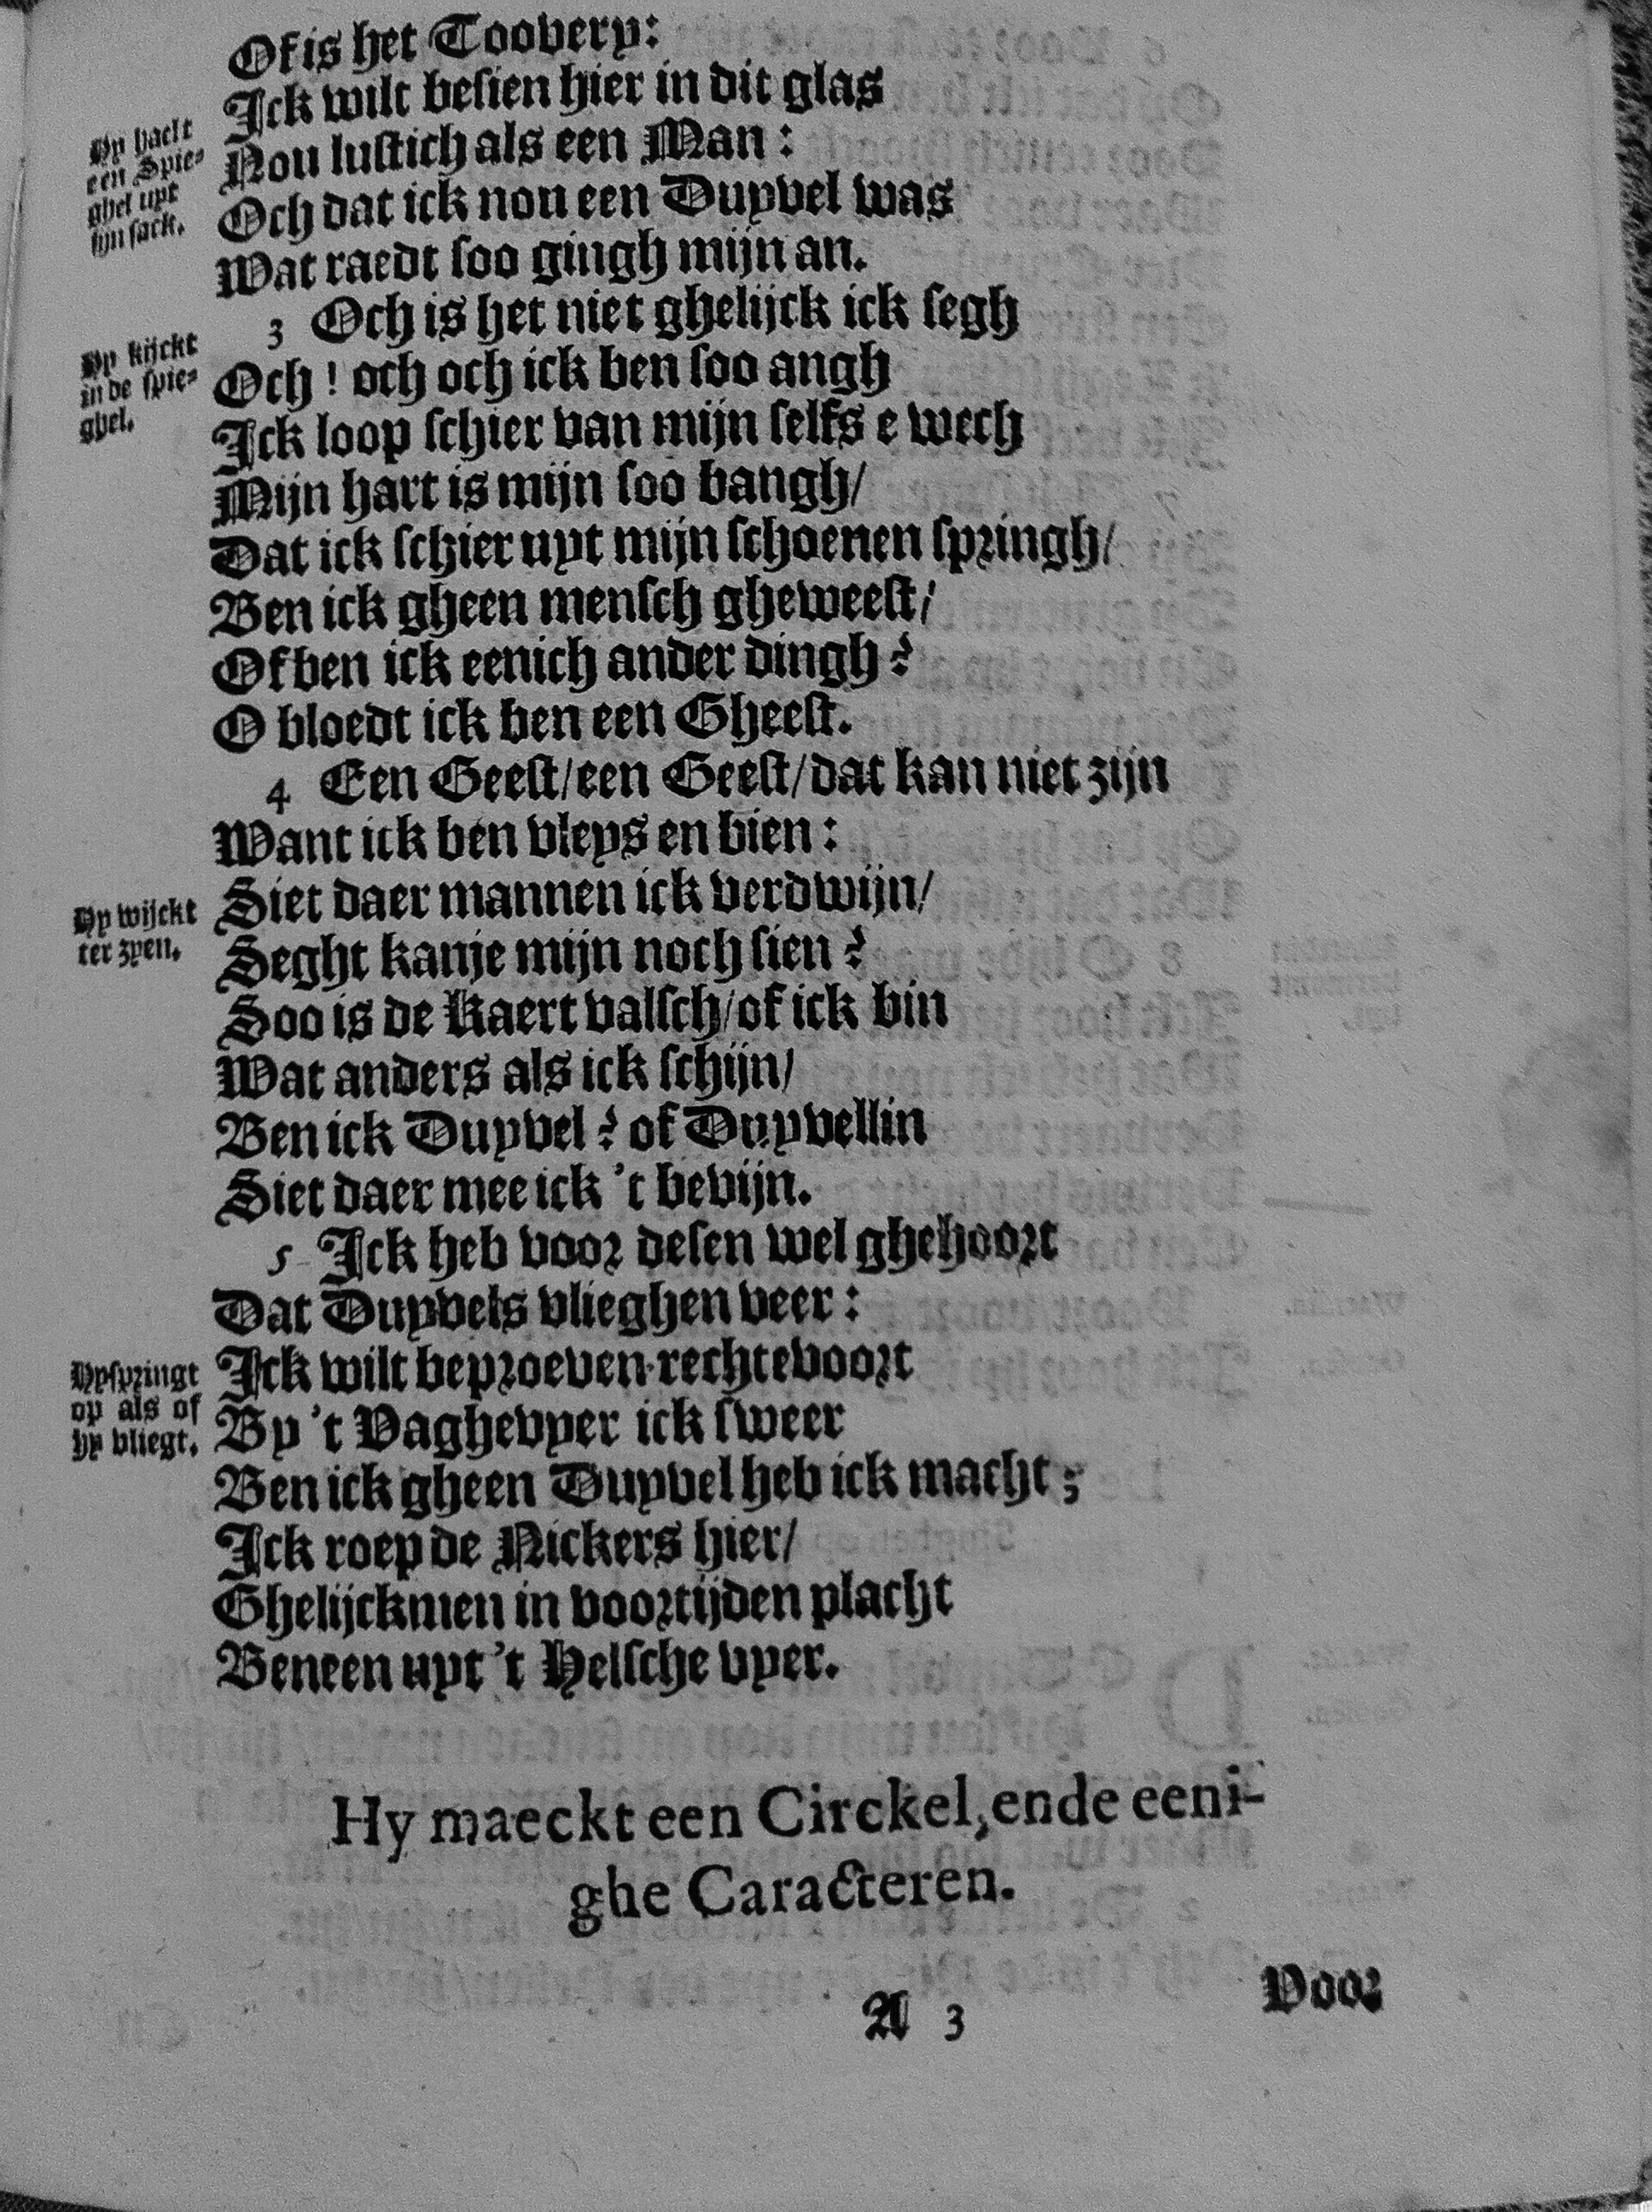 Of is het Toovery:
Ick wilt besien hier in dit glas
Hy haelt
een Spie-
ghel uyt
sijn sack.
Nou lustich als een Man:
Och dat ick nou een Duyvel was
Wat raedt soo gingh mijn an.
3 Och is het niet ghelijck ick segh
Hy kijckt
in de spie-
ghel.
Och! och och ick ben soo angh
Ick loop schier van mijn selfs e wech
Mijn hart is mijn soo bangh/
Dat ick schier uyt mijn schoenen springh/
Ben ick gheen mensch gheweest/
Of ben ick eenich ander dingh?
O bloedt ick ben een Gheest.
4 Een Geest/een Geest/dat kan niet zijn
Want ick ben vleys en bien:
Hy wijckt
ter zyen.
Siet daer mannen ick verdwijn/
Seght kanje mijn noch sien?
Soo is de Kaert valsch/of ick bin
Wat anders als ick schijn/
Ben ick Duyvel? of Duyvellin
Siet daer mee ick 't bevijn.
5 Ick heb voor desen wel ghehoort
Dat Duyvels vlieghen veer:
Hy springt
op als of
hy vliegt.
Ick wilt beproeven rechtevoort
By 't Vaghevyer ick sweer
Ben ick gheen Duyvel heb ick macht;
Ick roep de Nickers hier/
Ghelijckmen in voortijden placht
Beneen uyt 't Helsche vyer.
Hy maeckt een Circkel, ende eeni-
ghe Caracteren.
A 3
Voor